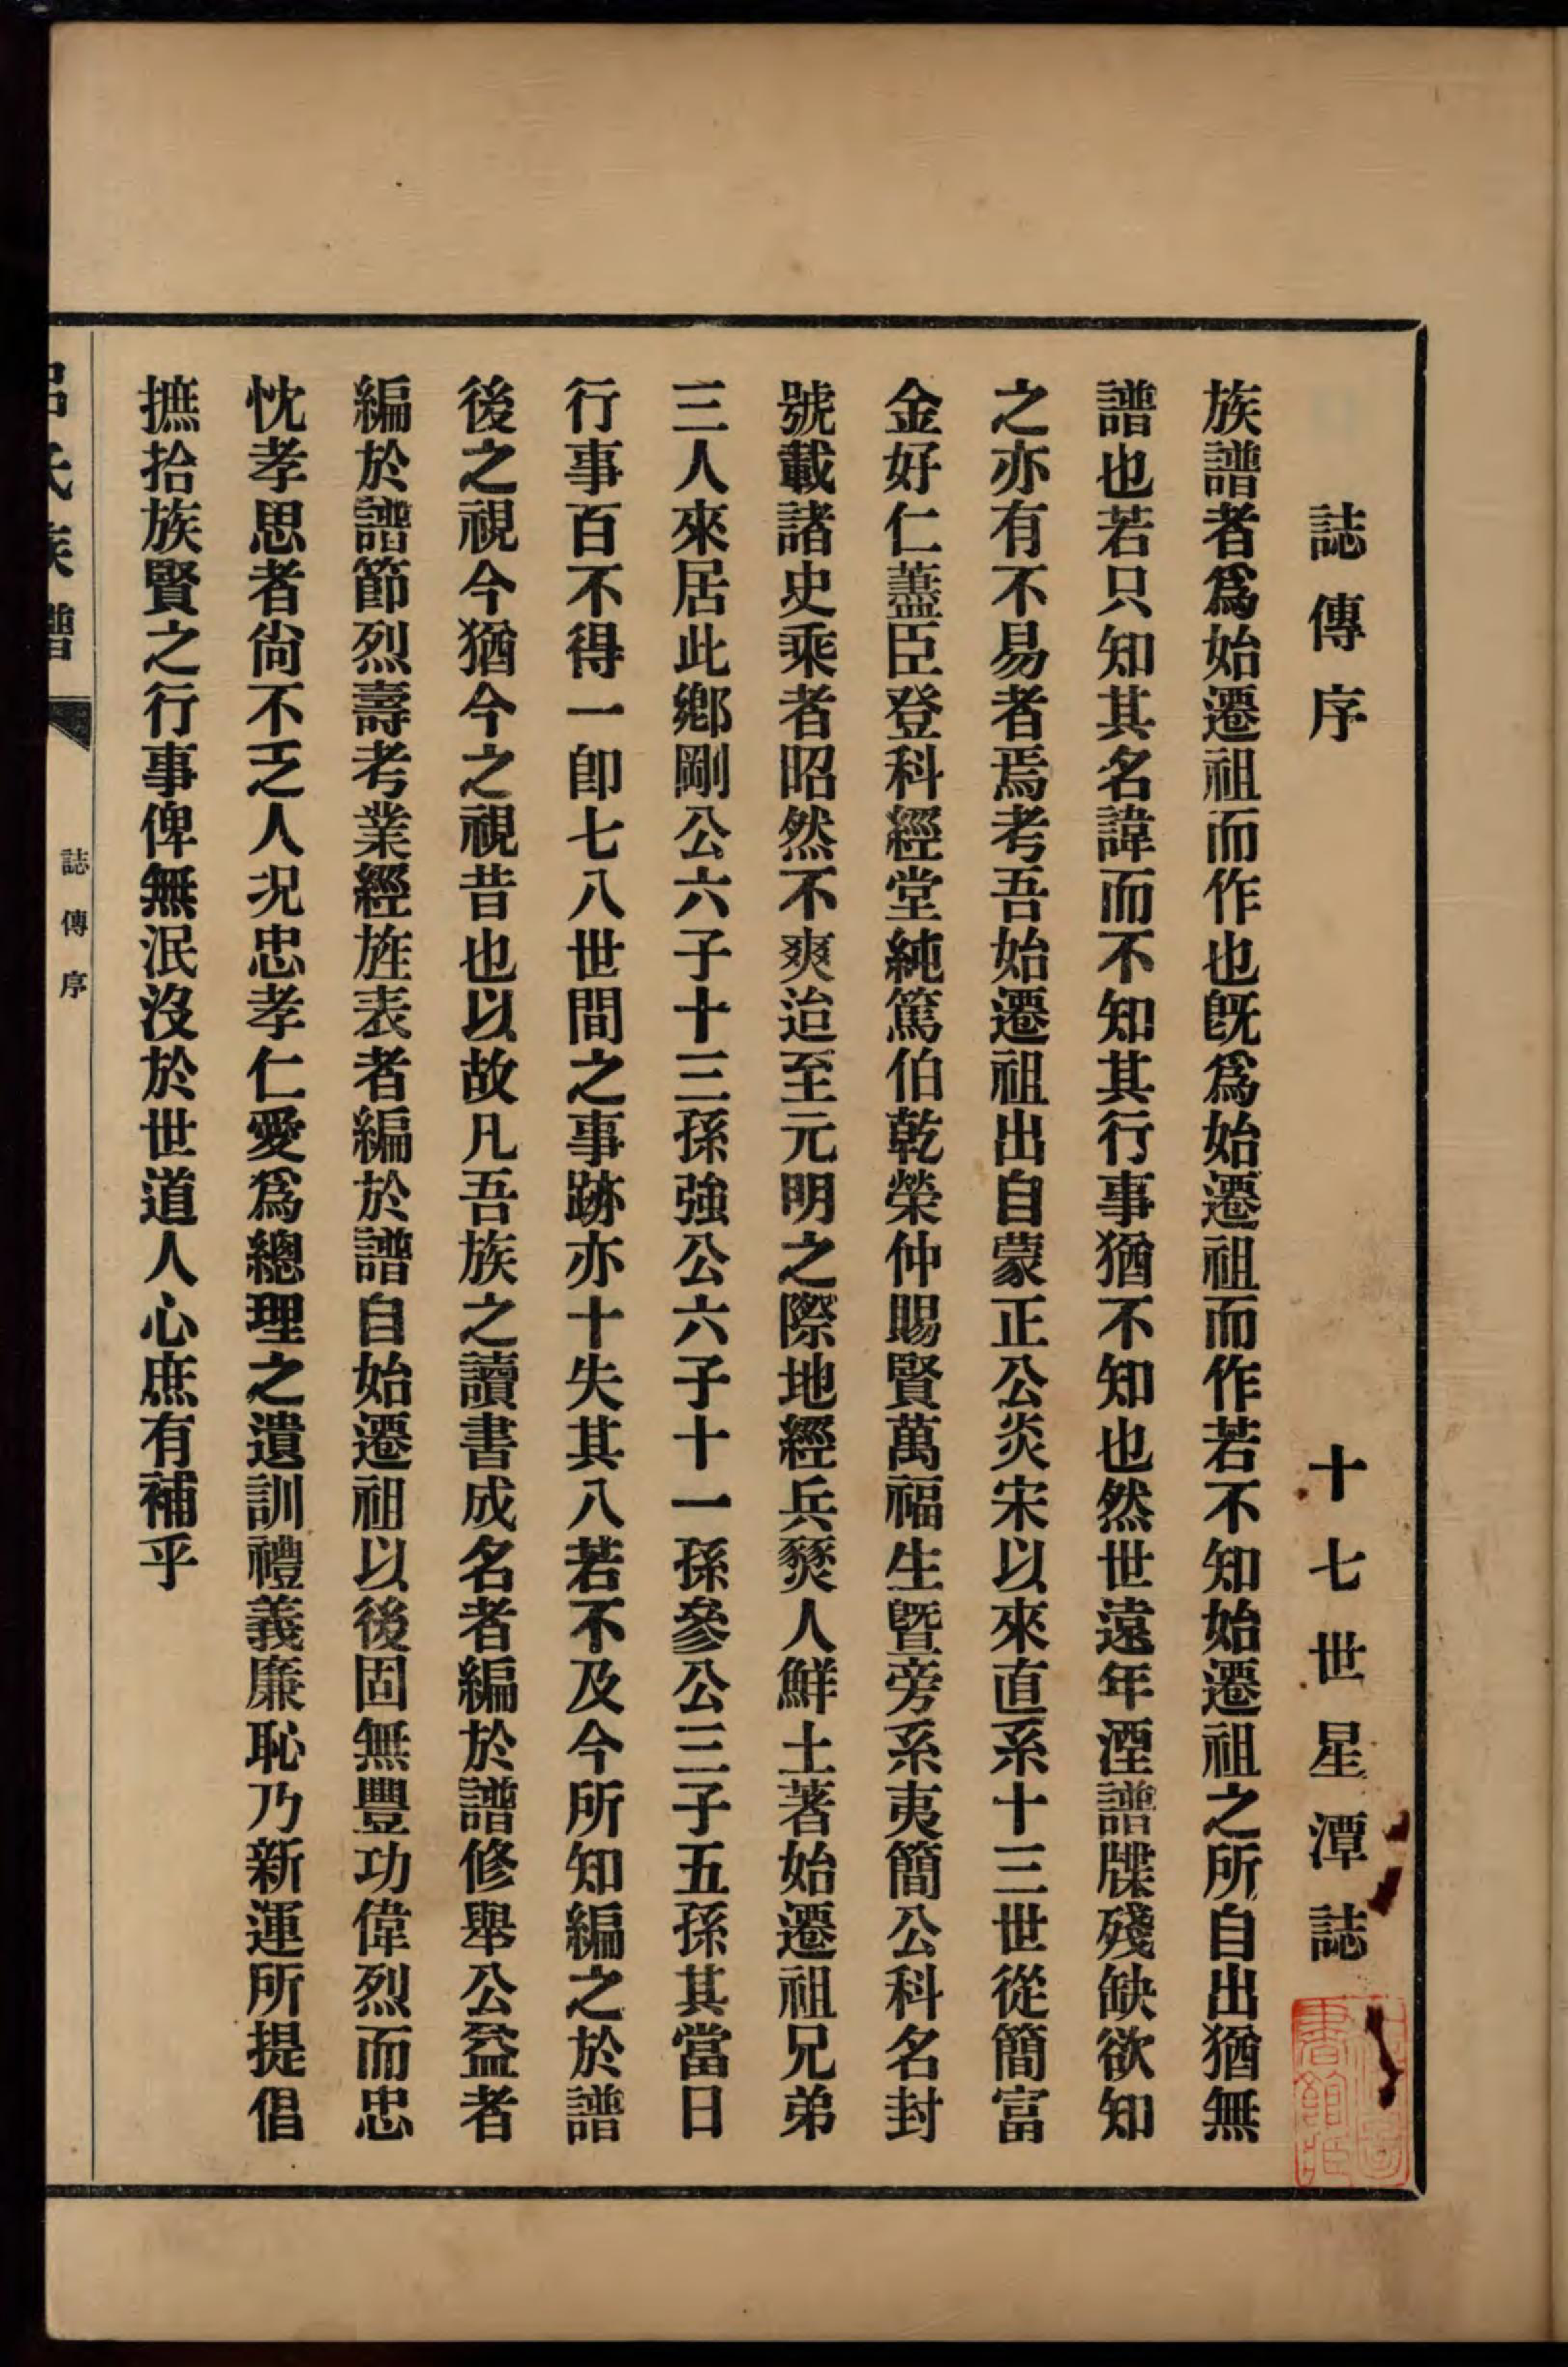 誌傳序　十七世星潭誌
族譜者爲始遷祖而作也既爲始遷祖而作若不知始遷祖之所自出猶無
譜也若只知其名諱而不知其行事猶不知也然世遠年湮譜牒殘缺欲知
之亦有不易者焉考吾始遷祖出自蒙正公炎宋以來直系十三世從簡富
金好仁藎臣登科經堂純篤伯乾榮仲賜賢萬福生暨旁系夷簡公科名封
號載諸史乘者昭然不爽迨至元明之際地經兵燹人鮮土著始遷祖兄弟
三人來居此鄉剛公六子十三孫強公六子十一孫參公三子五孫其當日
行事百不得一卽七八世間之事跡亦十失其八若不及今所知編之於譜
後之視今猶今之視昔也以故凡吾族之讀書成名者編於譜修舉公益者
編於譜節烈壽考業經旌表者編於譜自始遷祖以後固無豐功偉烈而忠
忱孝思者尙不乏人况忠孝仁愛爲總理之遺訓禮義廉恥乃新運所提倡
摭拾族賢之行事俾無泯沒於世道人心庶有補乎
呂氏族譜
誌傳序